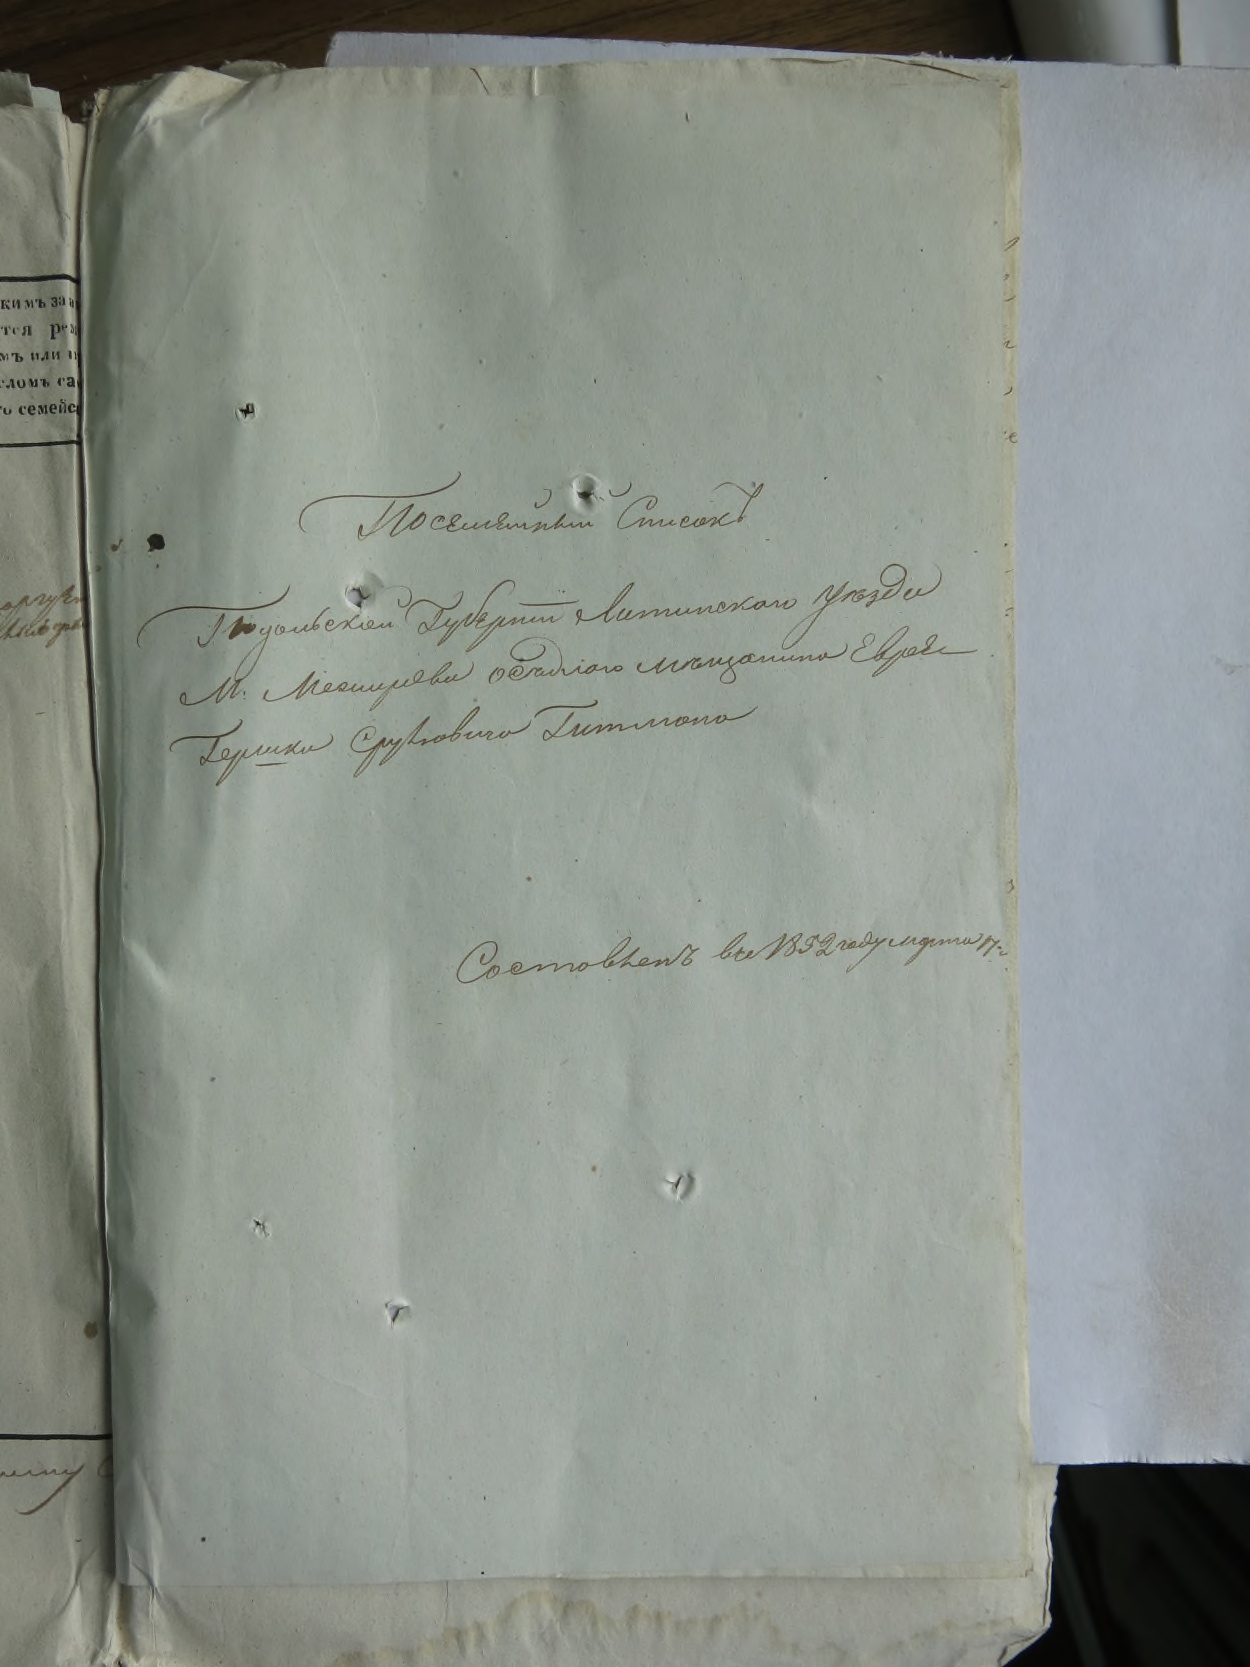 кимъ за
тся ре
мъ или
сломъ са
го семейс
Посемейный Списокъ
Подольской Губерніи Литинскаго Уѣзда
М. Межирова осѣдлаго мѣщанина Еврея
Гершка Срулевича Гитмана
Составленъ въ 1852 году марта 17